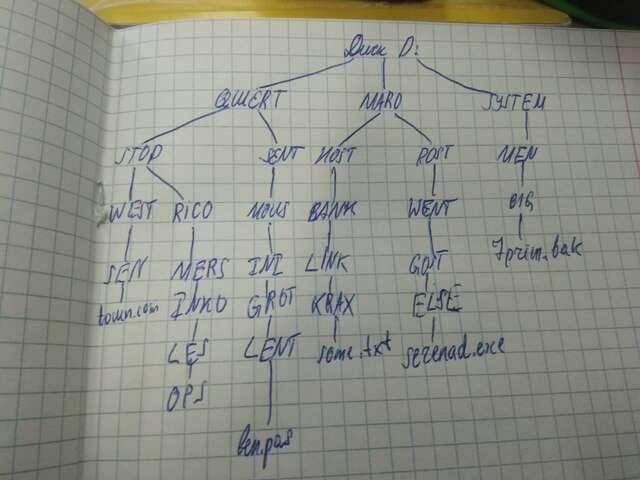 Диск D:
QWERT MARO SYSTEM
STOP SENT HOST ROST MEN
WEST RICO MOUS BANK WENT BIG
SEN MERS INI LINK GOT 7prim.bak
town.com INKO GROT KRAX ELSE
LES LENT some.txt serenad.exe
OPS
ben.pas